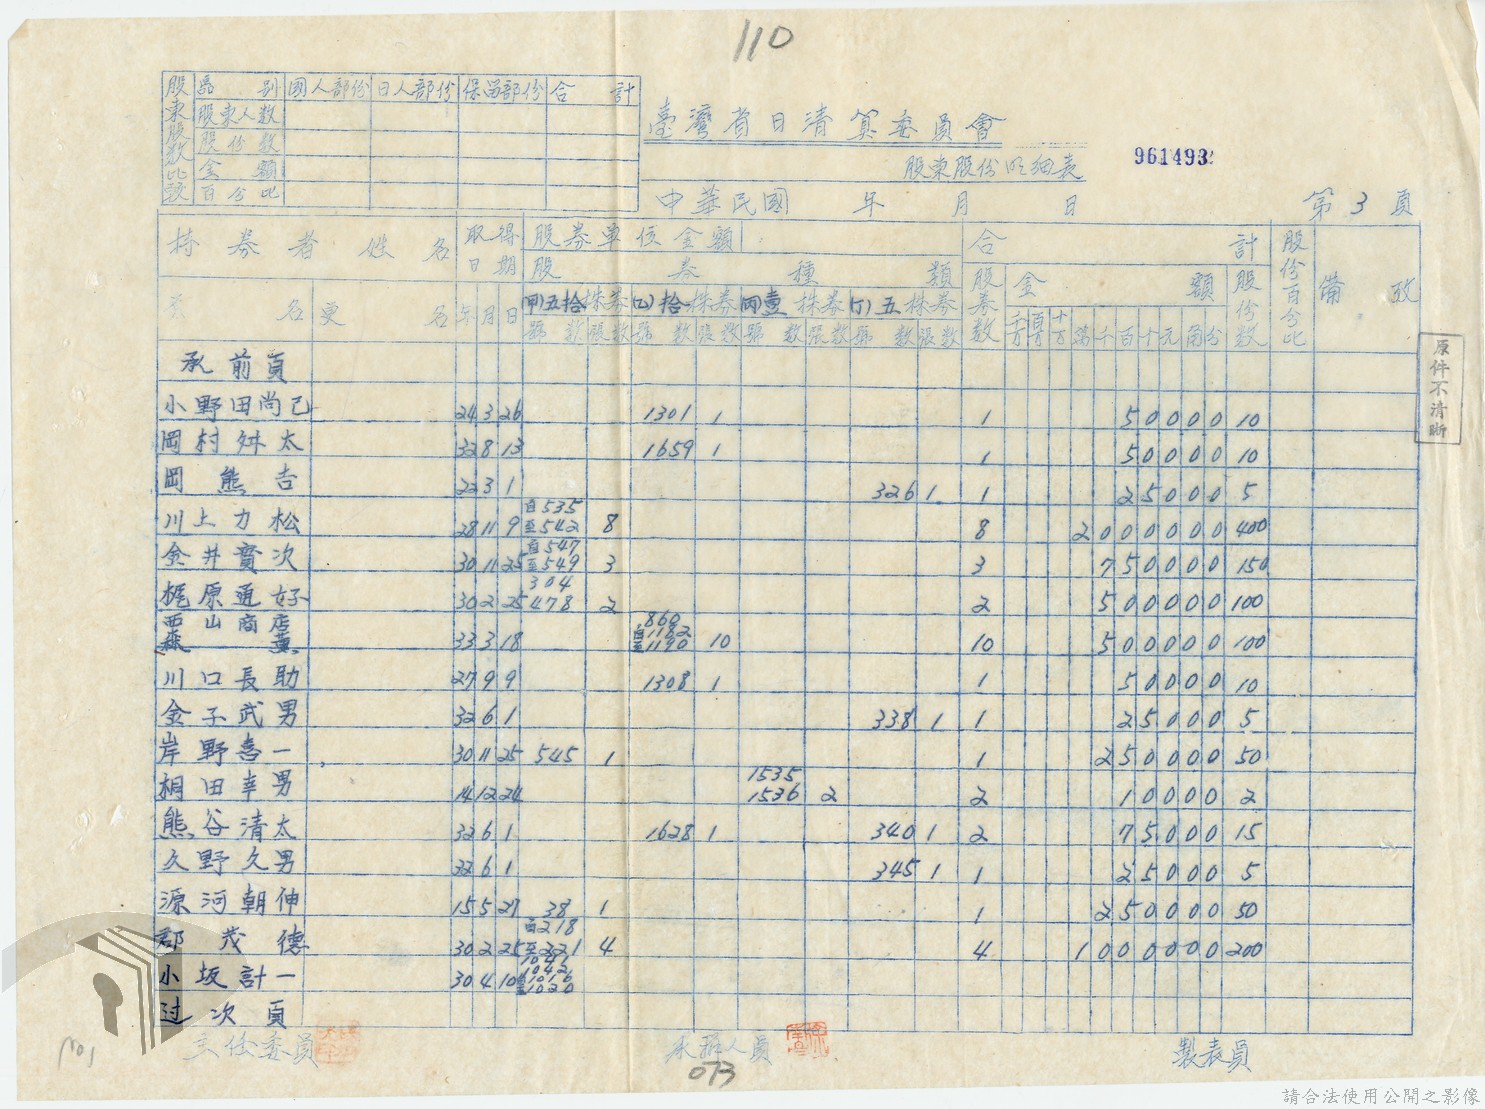 110
股東股數比較
區別 國人部份 日人部份 保留部份 合計
股東人數
股份數
金額
百分比
臺灣省日清算委員會
股東股份明細表
961493
中華民國 年 月 日
第 3 頁
持券者姓名 取得日期 股券單位金額 合計 股份百分比 備攷
股券種類 股券數 金額 股份數
名 更名 年 月 日 (甲)五拾株券 (乙)拾株券 (丙)壹株券 (丁)五株券
號數 張數 號數 張數 號數 張數 號數 張數 千万 百万 十万 萬 千 百 十 元 角 分
承前頁
小野田尚己 24 3 26 1301 1 1 50000 10
岡村舛太 32 8 13 1659 1 1 50000 10
岡熊吉 22 3 1 326 1 1 25000 5
川上力松 28 11 9 自535至542 8 8 2000000 400
金井實次 30 11 25 自547至549 3 3 750000 150
梶原通好 30 2 25 304 478 2 2 500000 100
西山商店 森薰 33 3 18 860 自1182至1190 10 10 500000 100
川口長助 27 9 9 1308 1 1 50000 10
金子武男 32 6 1 338 1 1 25000 5
岸野喜一 30 11 25 545 1 1 250000 50
桐田幸男 14 12 24 1535 1536 2 2 10000 2
熊谷清太 32 6 1 1628 1 340 1 2 75000 15
久野久男 32 6 1 345 1 1 25000 5
源河朝伸 15 5 27 38 1 1 250000 50
郡茂德 30 2 25 自218至221 4 4 1000000 200
小坂計一 30 4 10 1041 1042 1016 1020
过次頁
主任委員
承辦人員
製表員
073
no1
原件不清晰
請合法使用公開之影像